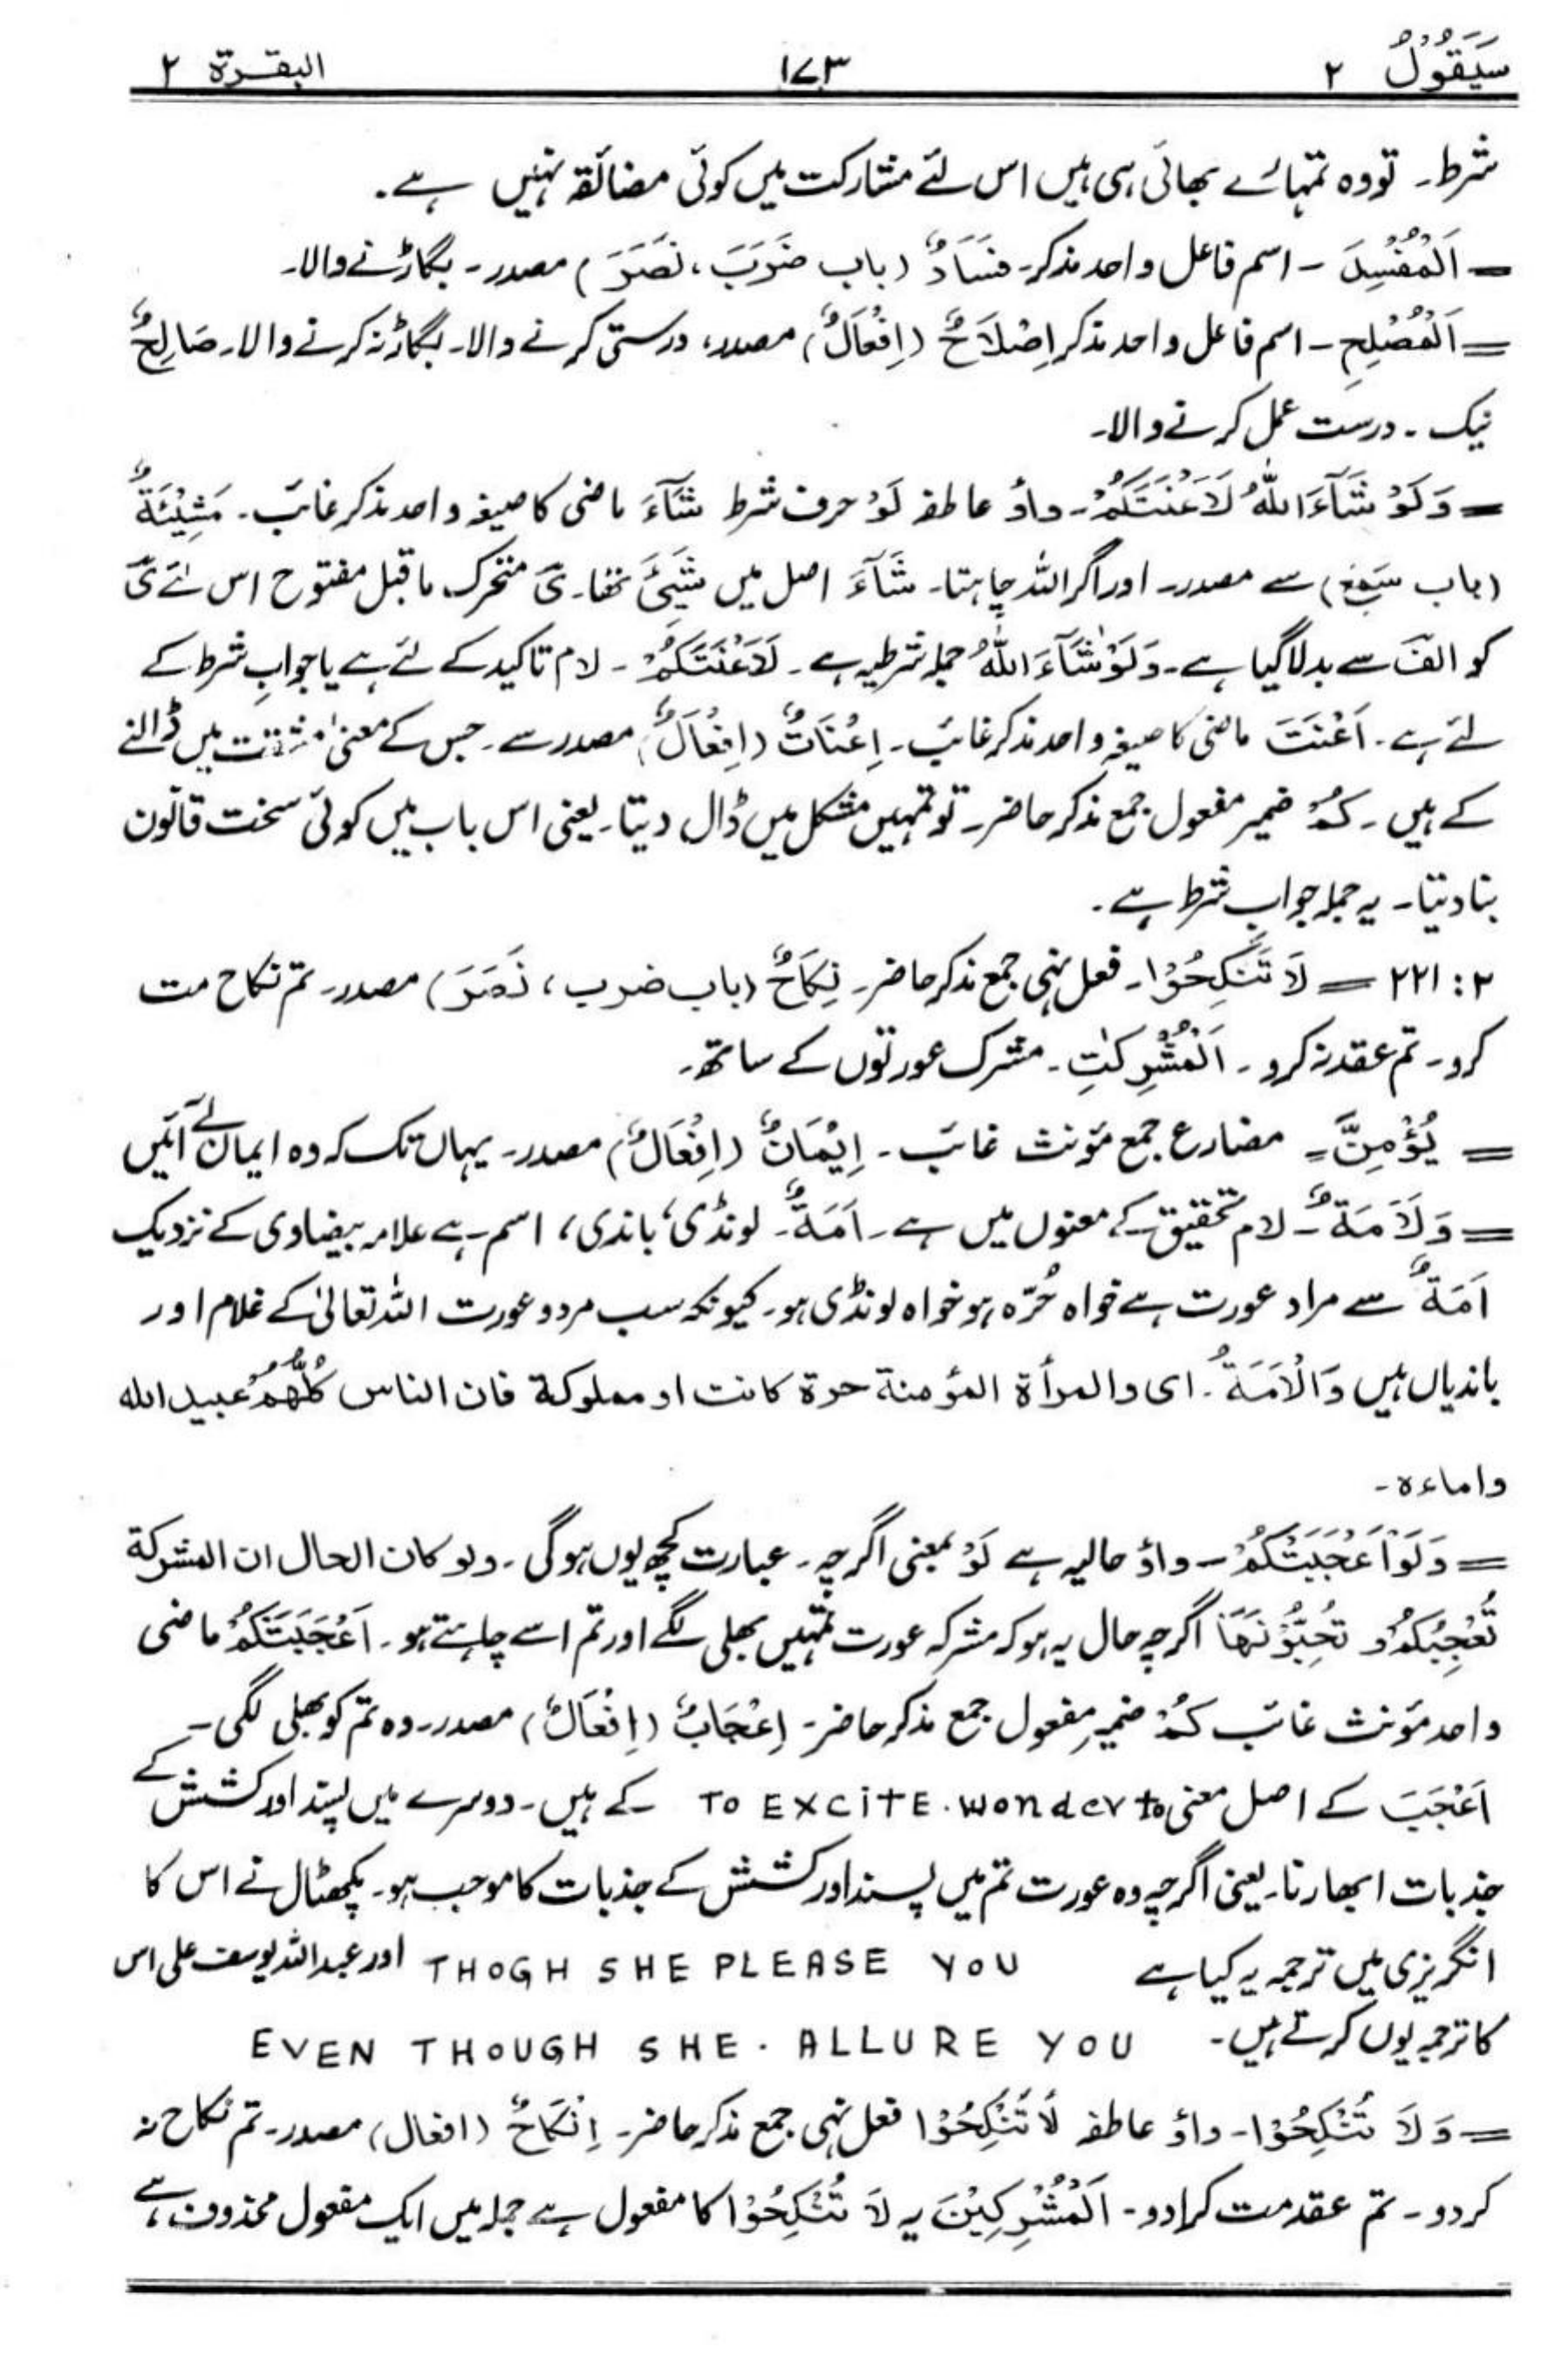 سَيَقُوْلُ ٢ ١٧٣ البقرة ٢
شرط۔ تو وہ تمہارے بھائی ہی ہیں اس لئے مشارکت میں کوئی مضائقہ نہیں ہے۔
= اَلْمُفْسِدَ ۔ اسم فاعل واحد مذکر۔ فَسَادٌ (باب ضَرَبَ، نَصَرَ) مصدر۔ بگاڑنے والا۔
= اَلْمُصْلِحِ ۔ اسم فاعل واحد مذکر اِصْلَاحٌ (اِفْعَالٌ) مصدر، درستی کرنے والا۔ بگاڑ نہ کرنے والا۔ صَالِحٌ
نیک ۔ درست عمل کرنے والا۔
= وَلَوْ شَآءَ اللّٰهُ لَاَعْنَتَكُمْ۔ واؤ عاطفہ لَوْ حرف شرط شَآءَ ماضی کا صیغہ واحد مذکر غائب۔ مَشِيْئَةٌ
(باب سَمِعَ) سے مصدر۔ اور اگر اللہ چاہتا۔ شَآءَ اصل میں شَيِئَ تھا۔ یَ متحرک ماقبل مفتوح اس لئے یَ
کو الف سے بدلا گیا ہے۔ وَلَوْ شَآءَ اللّٰهُ جملہ شرطیہ ہے۔ لَاَعْنَتَكُمْ ۔ لام تاکید کے لئے ہے یا جوابِ شرط کے
لئے ہے۔ اَعْنَتَ ماضی کا صیغہ واحد مذکر غائب۔ اِعْنَاتٌ (اِفْعَالٌ) مصدر سے۔ جس کے معنیٰ مشقت میں ڈالنے
کے ہیں۔ كُمْ ضمیر مفعول جمع مذکر حاضر۔ تو تمہیں مشکل میں ڈال دیتا۔ یعنی اس باب میں کوئی سخت قانون
بنا دیتا۔ یہ جملہ جوابِ شرط ہے۔
٢ : ٢٢١ = لَا تَنْكِحُوْا۔ فعل نہی جمع مذکر حاضر۔ نِكَاحٌ (باب ضرب، نَصَرَ) مصدر۔ تم نکاح مت
کرو۔ تم عقد نہ کرو۔ اَلْمُشْرِكٰتِ۔ مشرک عورتوں کے ساتھ۔
= يُؤْمِنَّ۔ مضارع جمع مؤنث غائب۔ اِيْمَانٌ (اِفْعَالٌ) مصدر۔ یہاں تک کہ وہ ایمان لے آئیں
= وَلَاَمَةٌ۔ لام تحقیق کے معنوں میں ہے۔ اَمَةٌ۔ لونڈی، باندی، اسم ہے علامہ بیضاوی کے نزدیک
اَمَةٌ سے مراد عورت ہے خواہ حُرّہ ہو خواہ لونڈی ہو۔ کیونکہ سب مرد و عورت اللہ تعالیٰ کے غلام اور
باندیاں ہیں وَالْاَمَةُ۔ ای والمرأة المؤمنة حرة كانت او مملوكة فان الناس كُلُّهُمْ عبيد الله
واماءه۔
= وَلَوْ اَعْجَبَتْكُمْ ۔ واؤ حالیہ ہے لَوْ بمعنی اگرچہ۔ عبارت کچھ یوں ہوگی۔ ولو كان الحال ان المشركة
تُعْجِبُكُمْ وتُحِبُّوْنَهَا اگرچہ حال یہ ہو کہ مشرکہ عورت تمہیں بھلی لگے اور تم اسے چاہتے ہو۔ اَعْجَبَتْكُمْ ماضی
واحد مؤنث غائب كُمْ ضمیر مفعول جمع مذکر حاضر۔ اِعْجَابٌ (اِفْعَالٌ) مصدر۔ وہ تم کو بھلی لگی۔
اَعْجَبَ کے اصل معنی TO EXCITE. wonder to کے ہیں۔ دوسرے میں پسند اور کشش کے
جذبات ابھارنا۔ یعنی اگرچہ وہ عورت تم میں پسند اور کشش کے جذبات کا موجب ہو۔ پکھتال نے اس کا
انگریزی میں ترجمہ یہ کیا ہے THOGH SHE PLEASE YOU اور عبداللہ یوسف علی اس
کا ترجمہ یوں کرتے ہیں۔ EVEN THOUGH SHE. ALLURE YOU
= وَلَا تُنْكِحُوْا۔ واؤ عاطفہ لَا تُنْكِحُوْا فعل نہی جمع مذکر حاضر۔ اِنْكَاحٌ (افعال) مصدر۔ تم نکاح نہ
کردو۔ تم عقد مت کرا دو۔ اَلْمُشْرِكِيْنَ یہ لَا تُنْكِحُوْا کا مفعول ہے جملہ میں ایک مفعول محذوف ہے